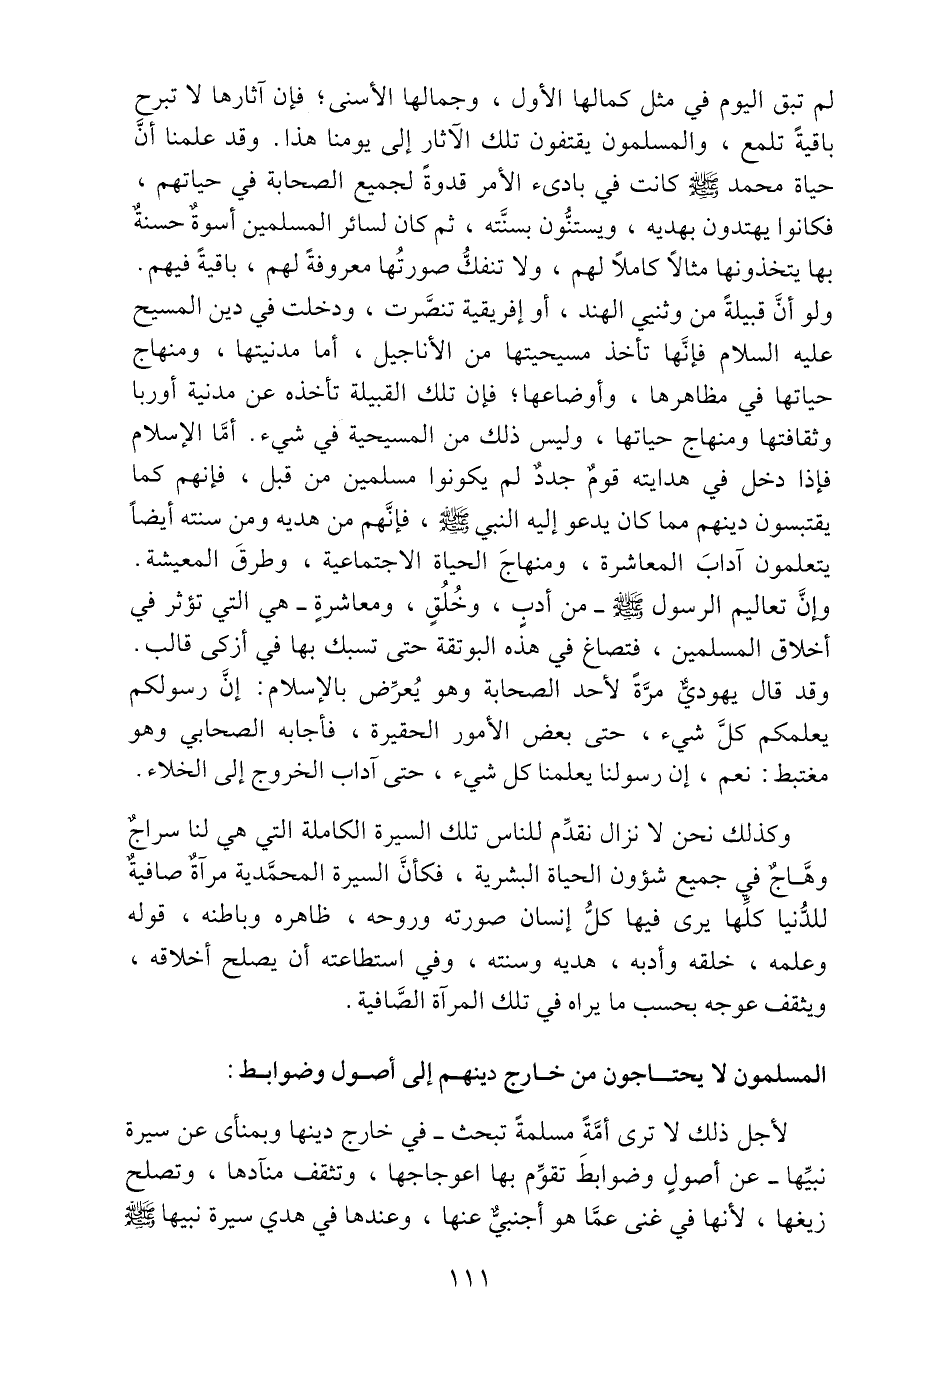 لم تبق اليوم في مثل كمالها الأول ، وجمالها الأسنى؛ فإن آثارها لا تبرح
باقيةً تلمع ، والمسلمون يقتفون تلك الآثار إلى يومنا هذا. وقد علمنا أنَّ
حياة محمد ﷺ كانت في بادىء الأمر قدوةً لجميع الصحابة في حياتهم ،
فكانوا يهتدون بهديه ، ويستنُّون بسنَّته ، ثم كان لسائر المسلمين أسوةٌ حسنةٌ
بها يتخذونها مثالاً كاملاً لهم ، ولا تنفكُّ صورتُها معروفةً لهم ، باقيةً فيهم.
ولو أنَّ قبيلةً من وثنيي الهند ، أو إفريقية تنصَّرت ، ودخلت في دين المسيح
عليه السلام فإنَّها تأخذ مسيحيتها من الأناجيل ، أما مدنيتها ، ومنهاج
حياتها في مظاهرها ، وأوضاعها؛ فإن تلك القبيلة تأخذه عن مدنية أوربا
وثقافتها ومنهاج حياتها ، وليس ذلك من المسيحية في شيء. أمَّا الإسلام
فإذا دخل في هدايته قومٌ جددٌ لم يكونوا مسلمين من قبل ، فإنهم كما
يقتبسون دينهم مما كان يدعو إليه النبي ﷺ ، فإنَّهم من هديه ومن سنته أيضاً
يتعلمون آدابَ المعاشرة ، ومنهاجَ الحياة الاجتماعية ، وطرقَ المعيشة.
وإنَّ تعاليم الرسول ﷺ ـ من أدبٍ ، وخُلُقٍ ، ومعاشرةٍ ـ هي التي تؤثر في
أخلاق المسلمين ، فتصاغ في هذه البوتقة حتى تسبك بها في أزكى قالب.
وقد قال يهوديٌّ مرَّةً لأحد الصحابة وهو يُعرِّض بالإسلام: إنَّ رسولكم
يعلمكم كلَّ شيء ، حتى بعض الأمور الحقيرة ، فأجابه الصحابي وهو
مغتبط: نعم ، إن رسولنا يعلمنا كل شيء ، حتى آداب الخروج إلى الخلاء.
وكذلك نحن لا نزال نقدِّم للناس تلك السيرة الكاملة التي هي لنا سراجٌ
وهَّـاجٌ في جميع شؤون الحياة البشرية ، فكأنَّ السيرة المحمَّدية مرآةٌ صافيةٌ
للدُّنيا كلِّها يرى فيها كلُّ إنسان صورته وروحه ، ظاهره وباطنه ، قوله
وعلمه ، خلقه وأدبه ، هديه وسنته ، وفي استطاعته أن يصلح أخلاقه ،
ويثقف عوجه بحسب ما يراه في تلك المرآة الصَّافية.
المسلمون لا يحتـاجون من خـارج دينهـم إلى أصـول وضوابـط:
لأجل ذلك لا ترى أمَّةً مسلمةً تبحث ـ في خارج دينها وبمنأى عن سيرة
نبيِّها ـ عن أصولٍ وضوابطَ تقوِّم بها اعوجاجها ، وتثقف منآدها ، وتصلح
زيغها ، لأنها في غنى عمَّا هو أجنبيٌّ عنها ، وعندها في هدي سيرة نبيها ﷺ
١١١